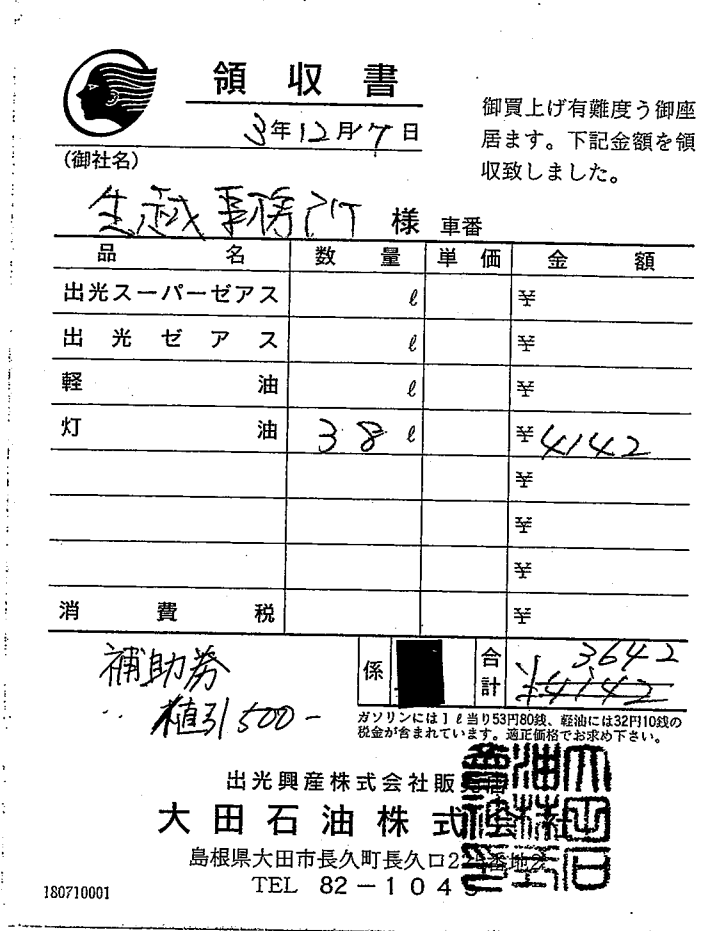 領収書
3年12月17日
御買上げ有難度う御座
居ます。下記金額を領
収致しました。
(御社名)
生越事務所 様 車番
品名 数量 単価 金額
出光スーパーゼアス ℓ ¥
出光ゼアス ℓ ¥
軽油 ℓ ¥
灯油 38 ℓ ¥4142
¥
¥
¥
消費税 ¥
係 合計 3642
¥4142
補助券
値引500-
ガソリンには1ℓ当り53円80銭、軽油には32円10銭の
税金が含まれています。適正価格でお求め下さい。
出光興産株式会社販売店
大田石油株式会社
島根県大田市長久町長久口2
TEL 82-104
180710001